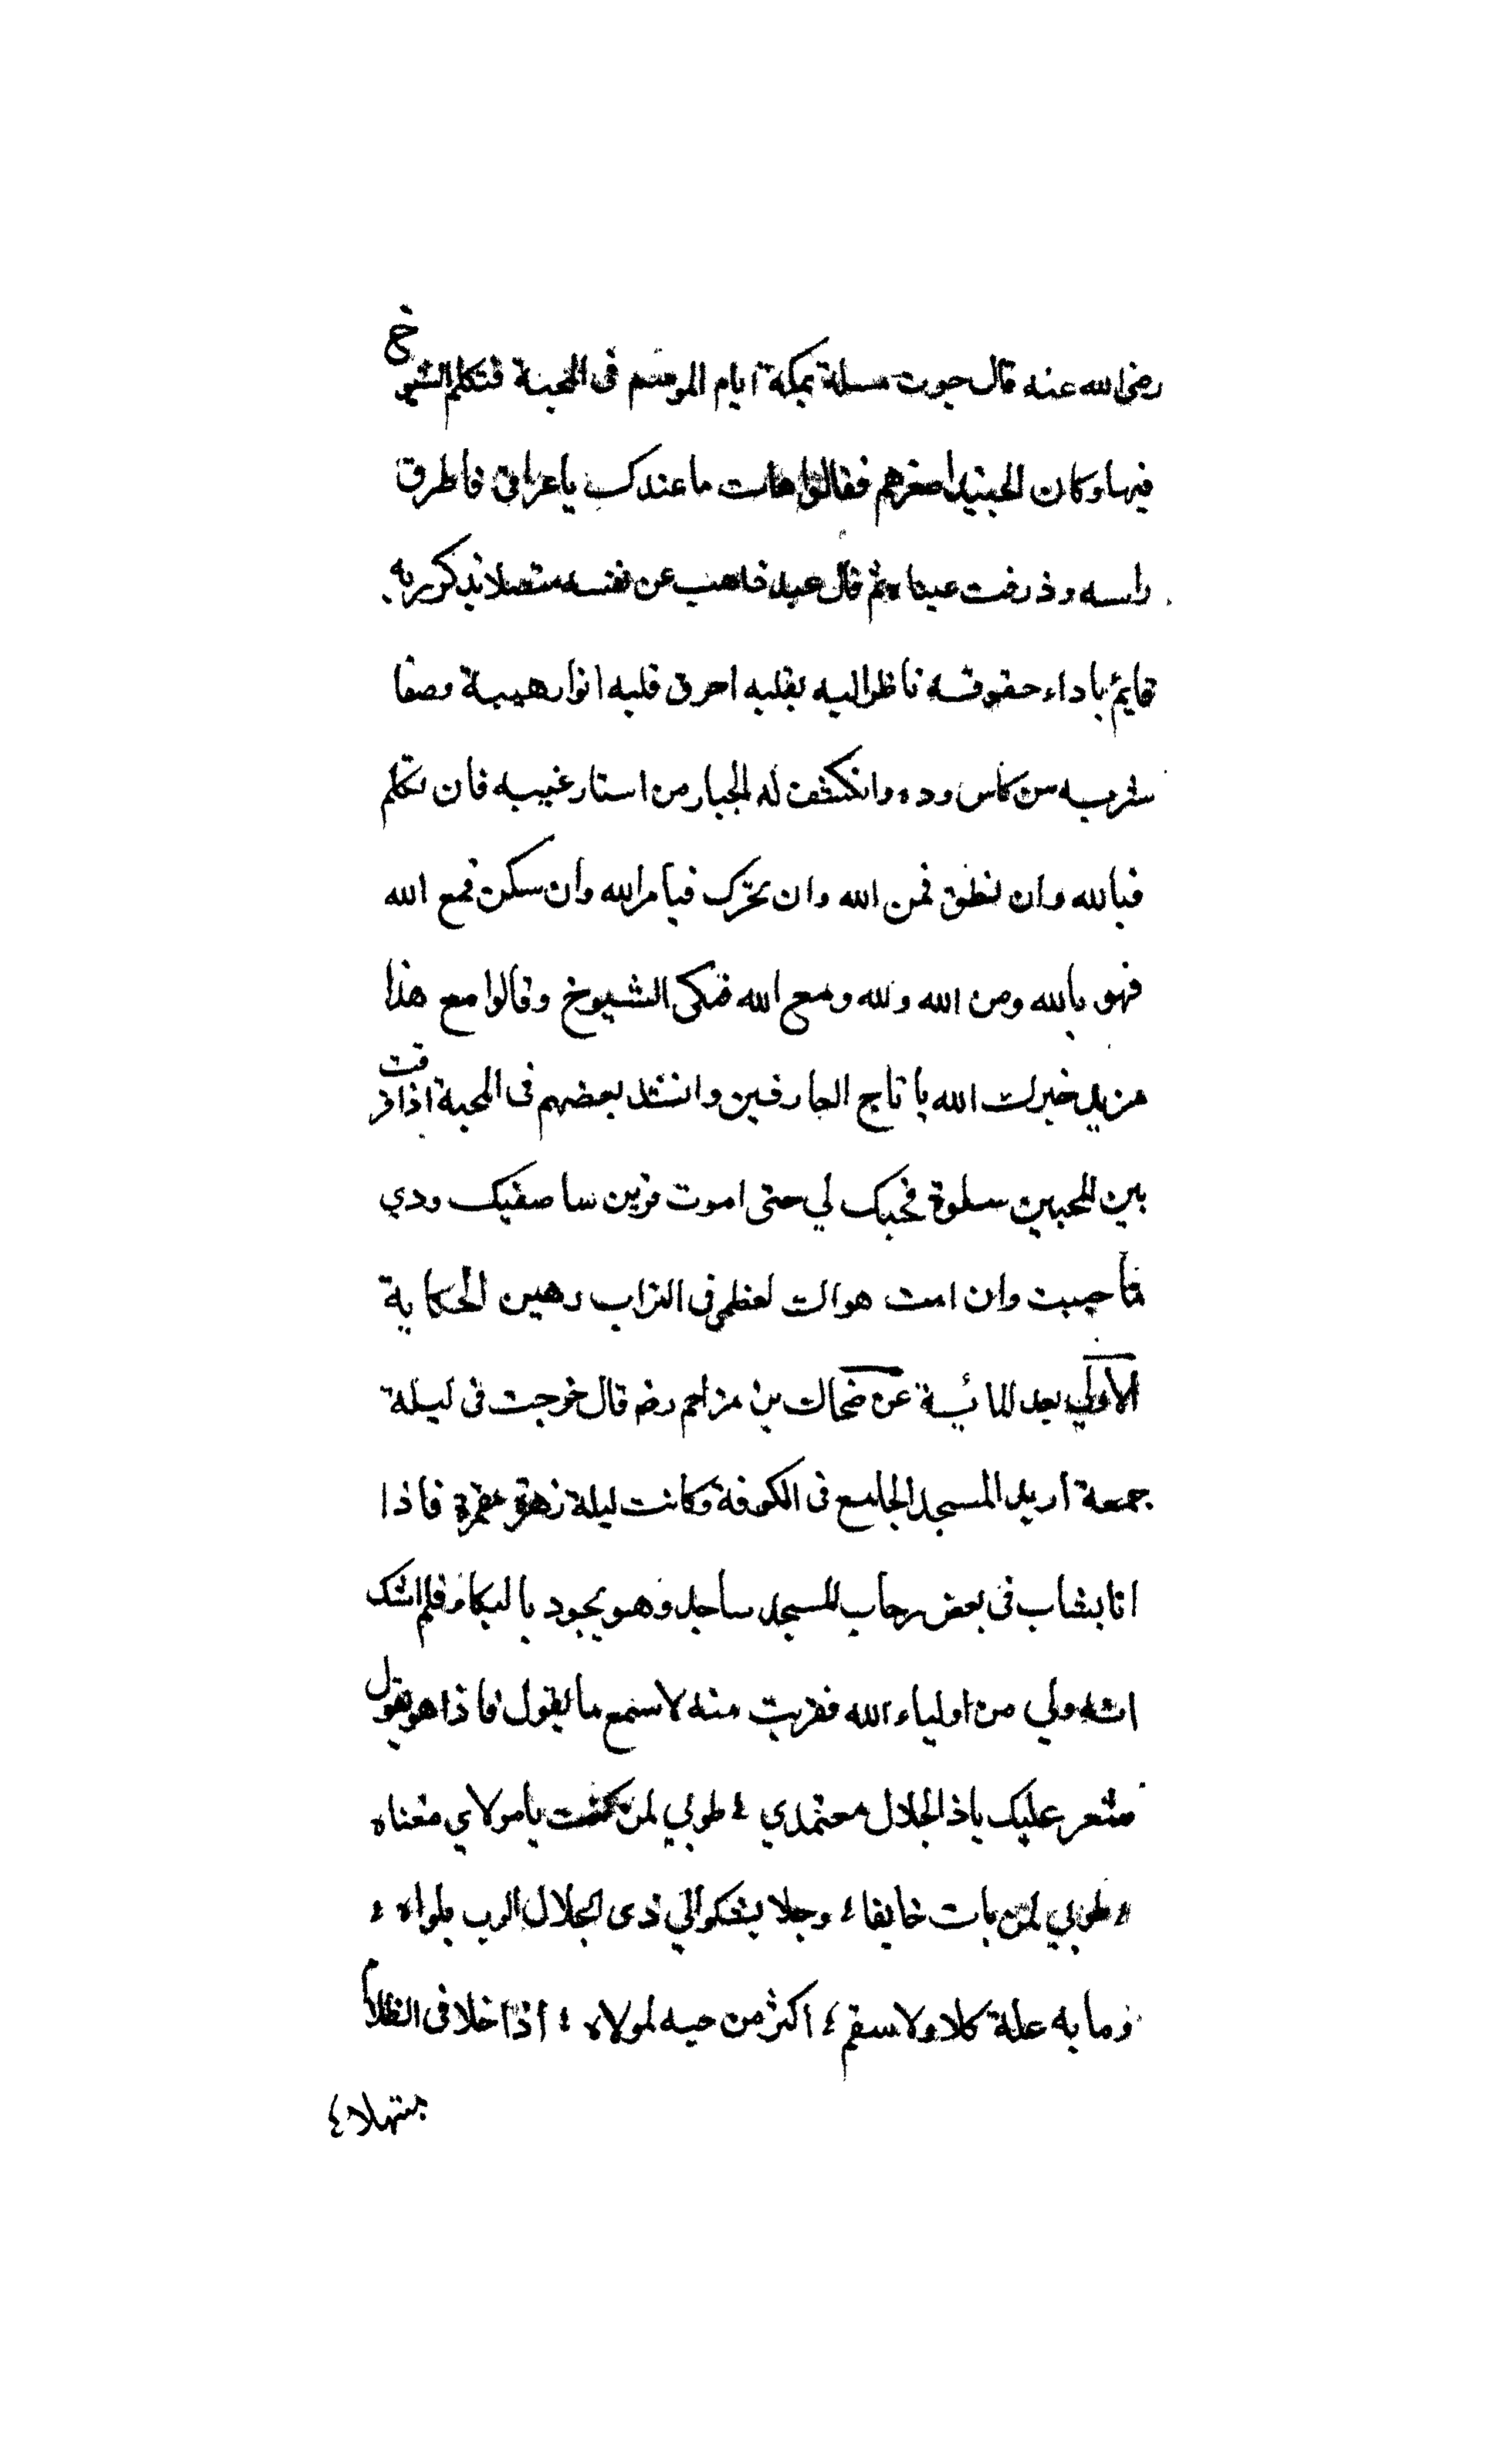 رضى الله عنه قال جرت مسلة بمكة ايام الموسم فى المحبة فتكلم الشيوخ
فيها وكان الجنيد اصغرهم فقالوا هات ما عندك يا عراقى فاطرق
راسه وذرفت عيناه ثم قال عبد ذاهب عن نفسه متصلا بذكر ربه
قايم باداء حقوقه ناظر اليه بقلبه احرق قلبه انوار هيبة وصفا
شربه من كاس وده وانكشف له الجبار من استار غيبه فان تكلم
فبالله وان نطق فمن الله وان تحرك فبامر الله وان سكن فمع الله
فهو بالله ومن الله ولله ومع الله فبكى الشيوخ وقالوا مع هذا
مزيد خبرك الله يا تاج العارفين وانشد بعضهم فى المحبة اذا فرقت
بين المحبين سلوة فحبك لي حتى اموت قرين ساصفيك ودي
ما حييت وان امت هواك لعظمى فى التراب رهين الحكاية
الأولي بعد المائية عن ضحاك بن مزاحم رضه قال خرجت فى ليلة
جمعة اريد المسجد الجامع فى الكوفة وكانت ليلة زهرة مقمرة فاذا
انا بشاب فى بعض رحاب المسجد ساجد وهو يجود بالبكاء فلم اشك
انه ولي من اولياء الله فقربت منه لاسمع ما يقول فاذا هو يقول
شعر عليك ياذ الجلال معتمدي ء طوبي لمن كنت يا مولاي معناه
ء طوبي لمن بات خايفا ء وجلا يشكوا الي ذى الجلال الرب بلواه ء
وما به علة كلا ولا سقم ء اكثر من حبه لمولاه ء اذا خلا فى الظلام
مبتهلا ء